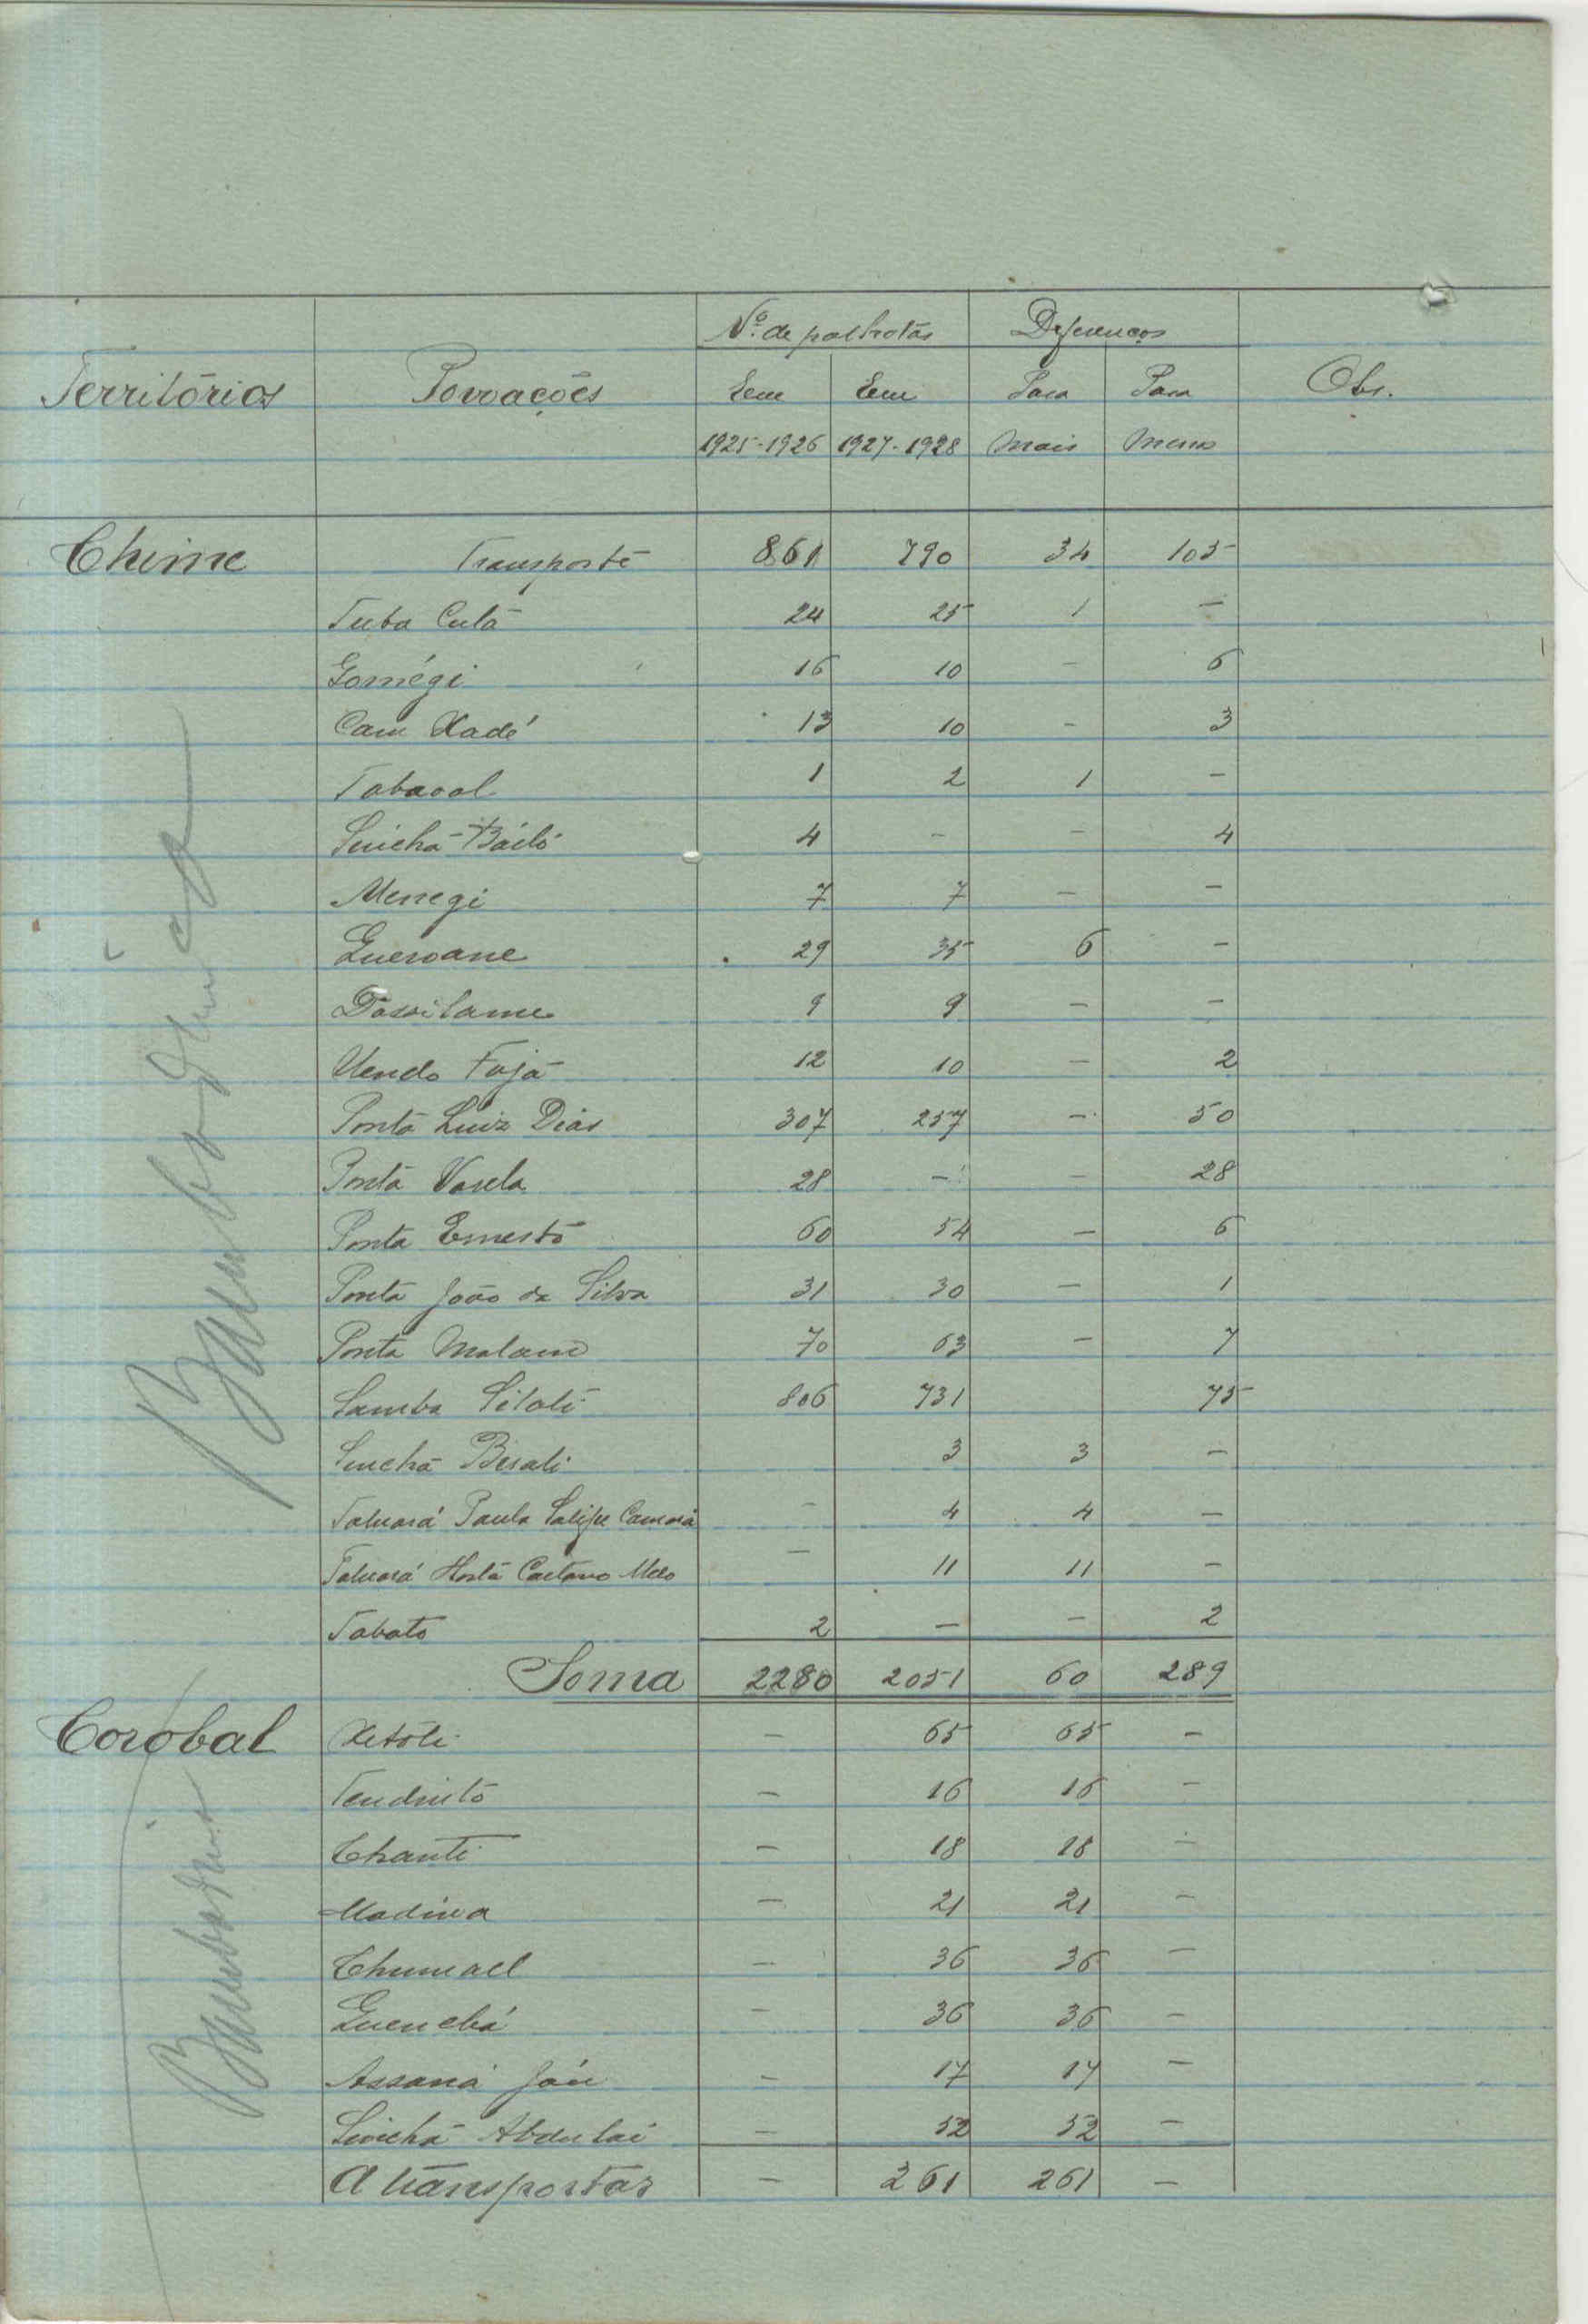 Nº. de palhotas Diferenças
Territórios Povoações Em Em Para Para Obs.
1925-1926 1927-1928 Mais Menos
Chime Transporte 861 790 34 105
Tuba Cutá 24 25 1 —
Gomégi 16 10 — 6
Cam Xadé 13 10 - 3
Tabacal 1 2 1 —
Sinchã Báiló 4 - - 4
Menegi 7 7 — —
Gueroane 29 35 6 —
9 9 — —
Uendo Fajá 12 10 — 2
Ponta Luiz Dias 307 257 — 50
Ponta Varela 28 — — 28
Ponta Ernesto 60 54 — 6
Ponta João da Silva 31 30 — 1
Ponta Malam 70 63 — 7
Samba Silati 806 731 75
Sinchã Bisali 3 3 —
Paula Salifu Camará - 4 4 —
Horta Caetano Melo — 11 11 —
Tabato 2 — — 2
Soma 2280 2051 60 289
Corobal Xitóli — 65 65 —
Tendinto — 16 16 —
Chanti — 18 18 —
Madina — 21 21 —
Chumael — 36 36 —
Guenchá — 36 36 —
Assaná Jáu — 17 17 —
Sinchã Abdulai — 52 52 —
A transportar — 261 261 —
Bambadinca
Bambadinca